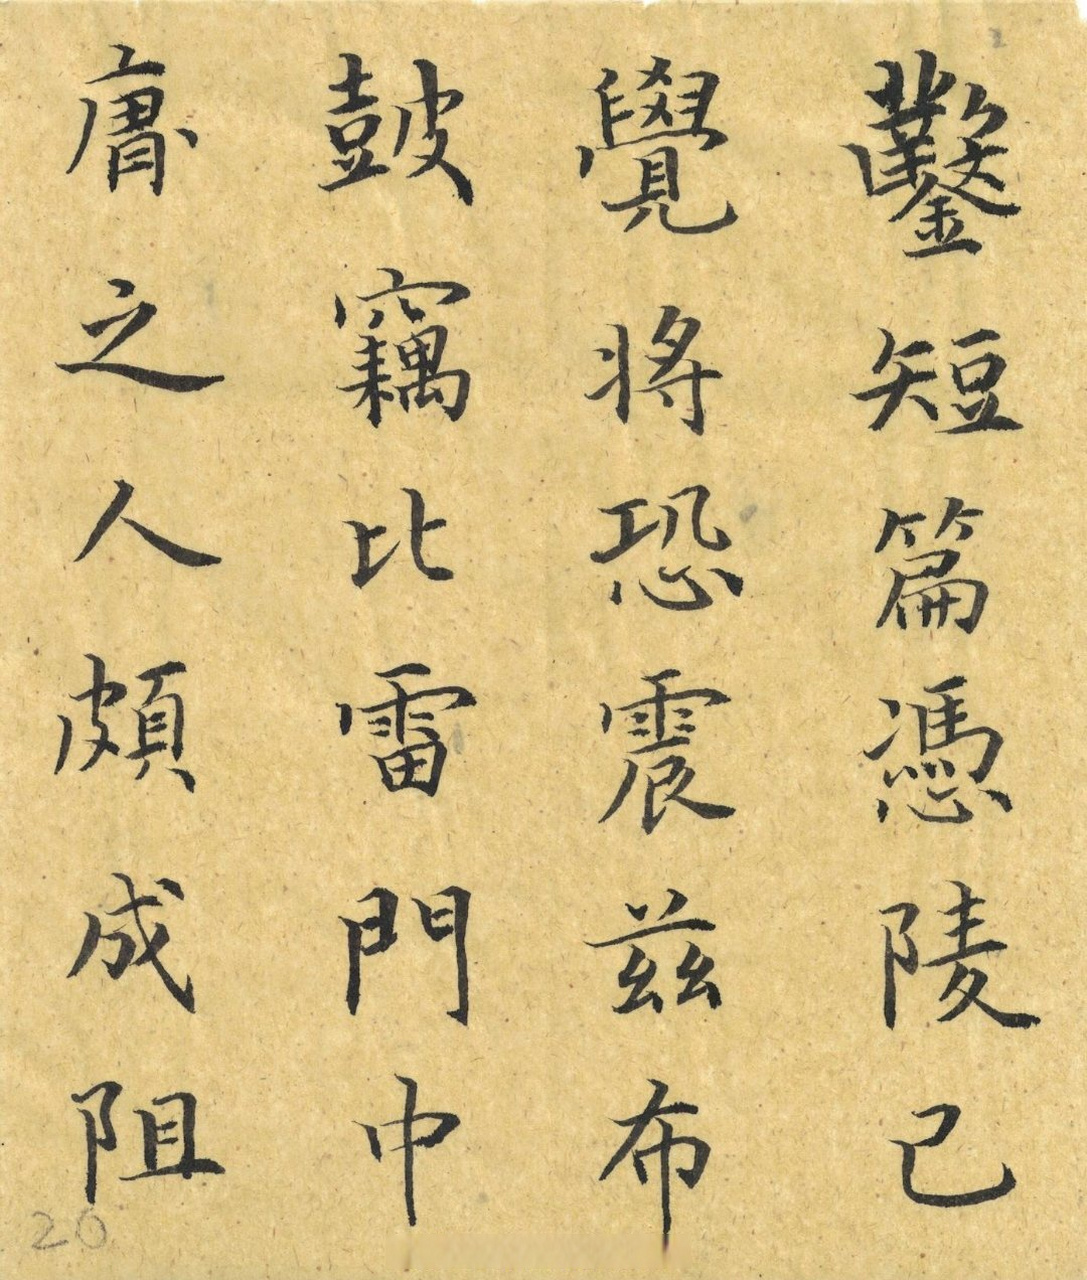 鑿短篇憑陵已
覺將恐震茲布
鼓竊比雷門中
膚之人頗成阻
20